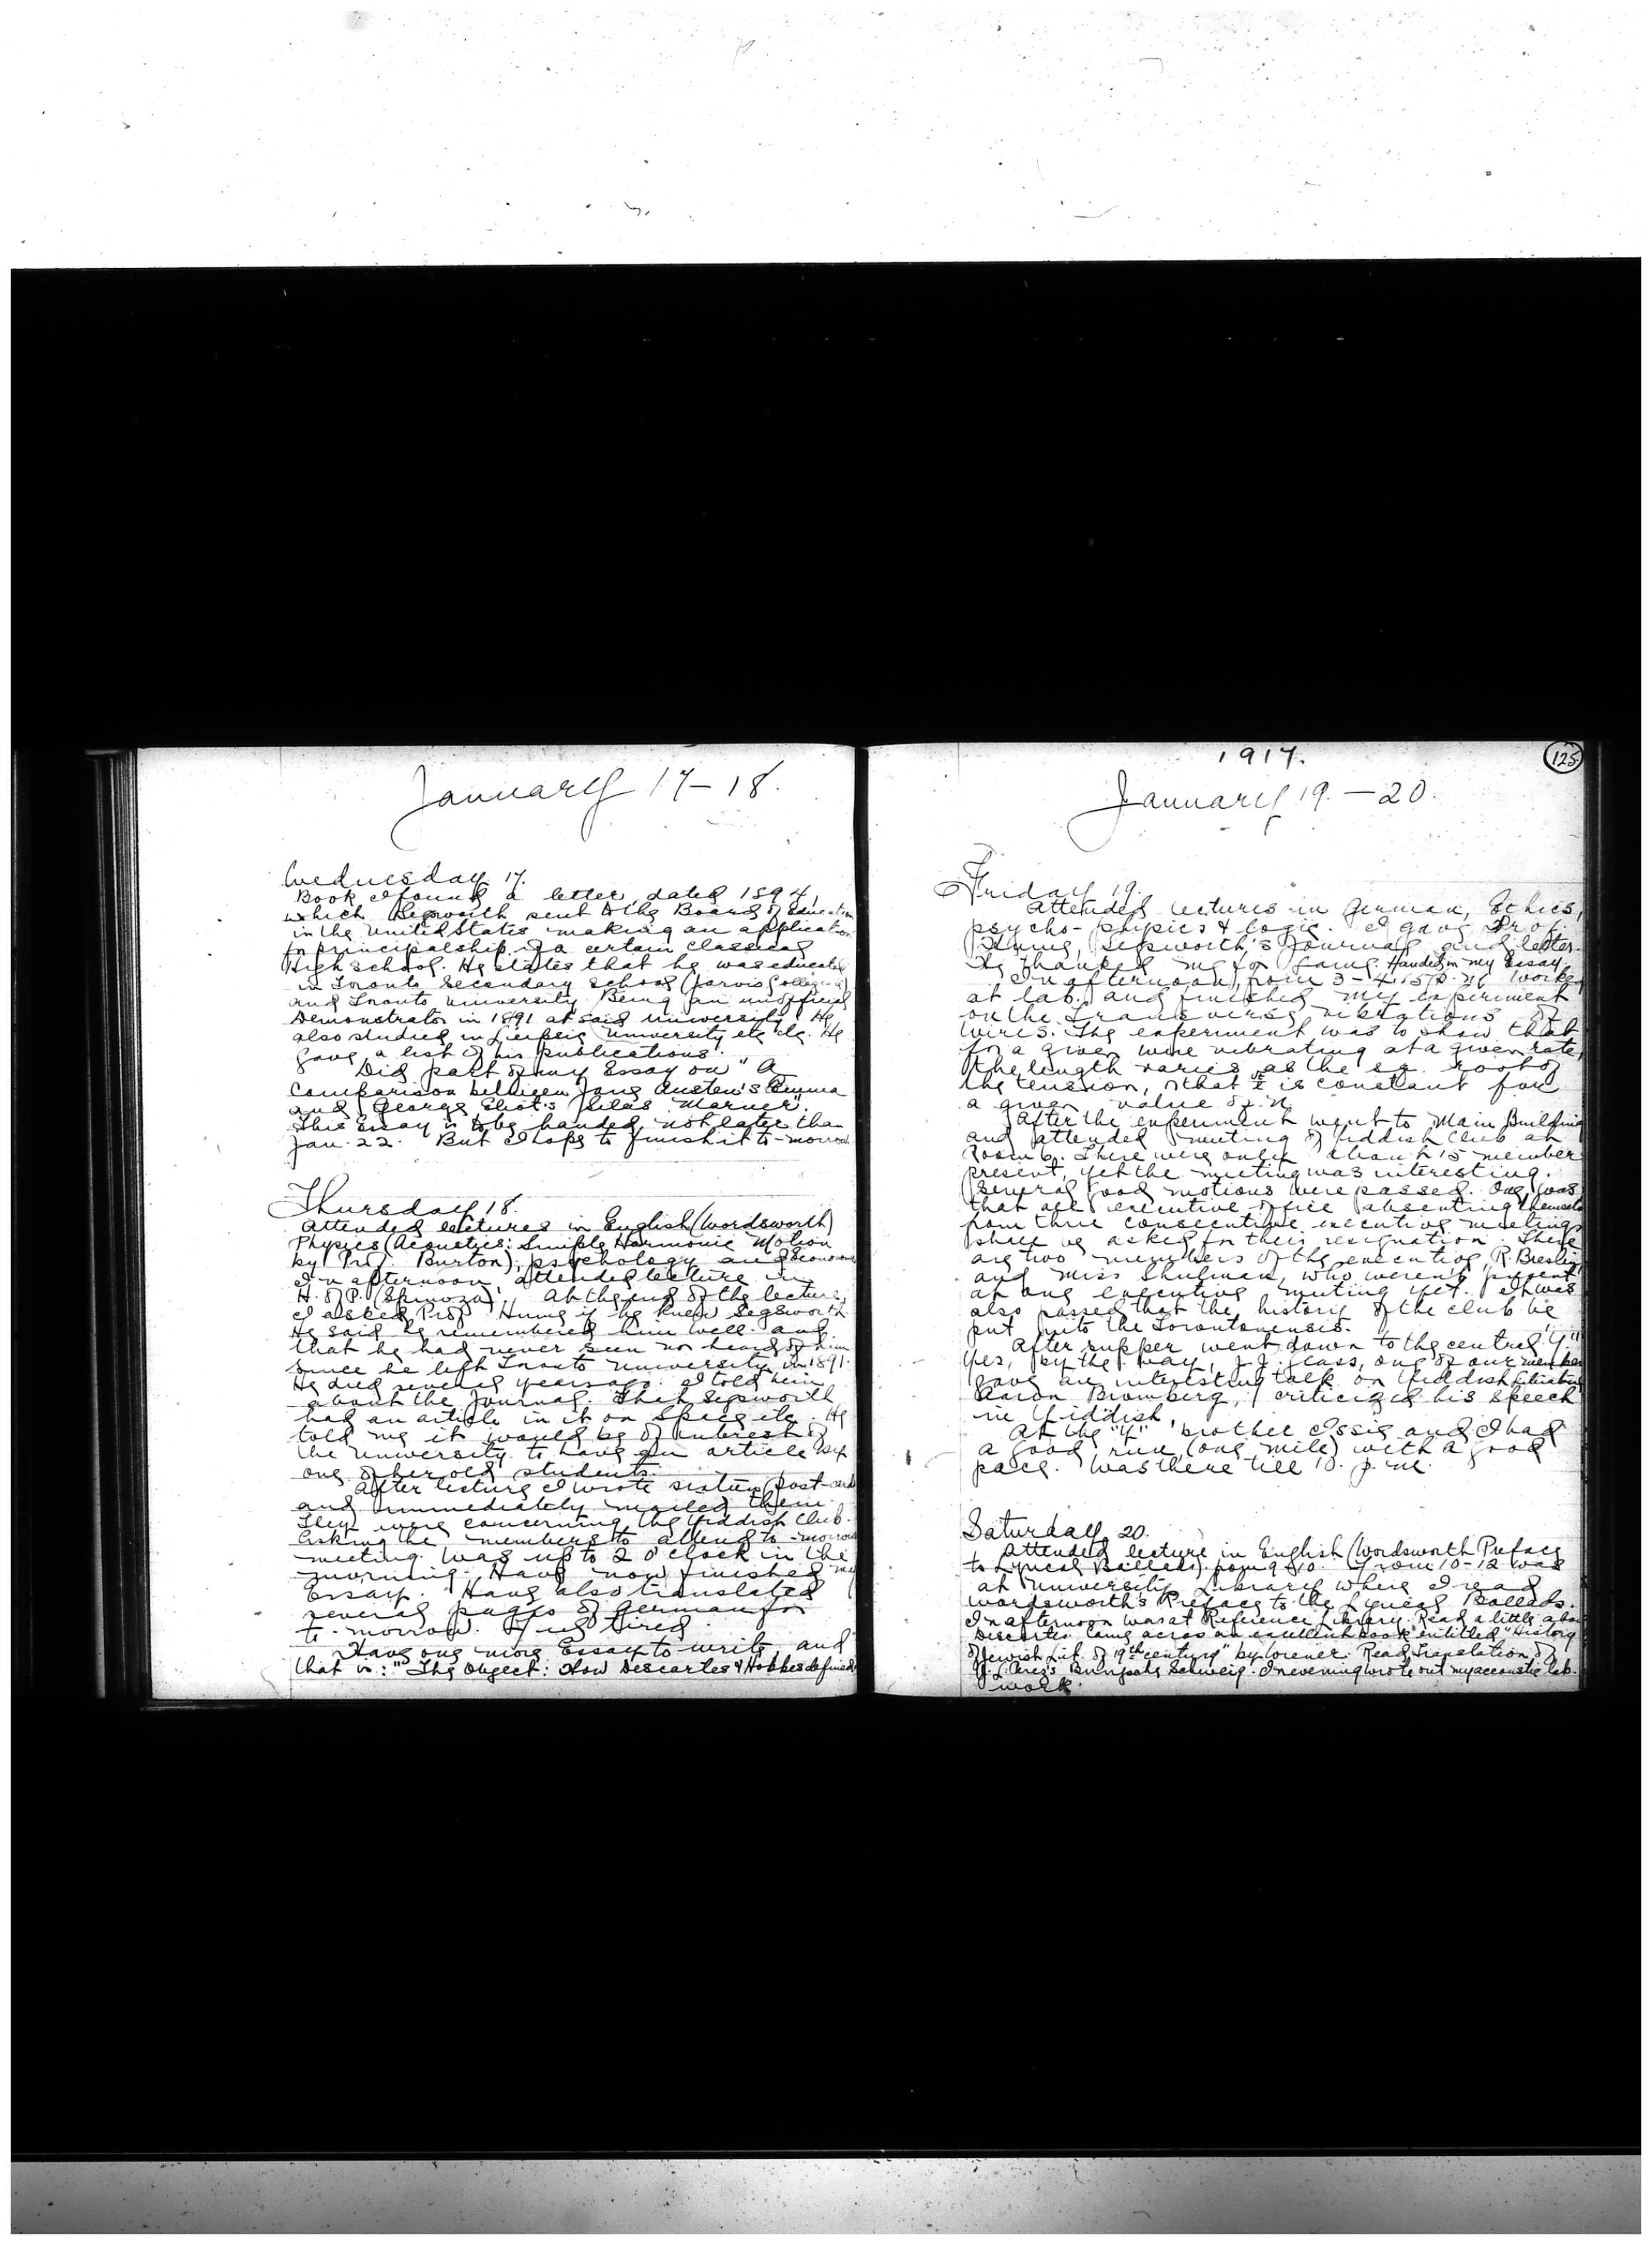 January 17-18.
Wednesday 17.
Book I found a letter, dated 1894,
which Segsworth sent to the Board of Education
in the United States making an application
for principalship of a certain classical
High school. He states that he was educated
in Toronto Secondary school (Jarvis Collegiate)
and Toronto University. Being an unofficial
Demonstrator in 1891 at said University. He
also studied in Leipzig University etc etc. He
gave a list of his publications.
Did part of my Essay on "A
Comparison between Jane Austen's Emma
and George Eliot's Silas Marner".
This Essay is to be handed not later than
Jan. 22. But I hope to finish it to-morrow
Thursday 18.
Attended lectures in English (Wordsworth)
Physics (Acoustics: Simple Harmonic Motion
by Prof. Burton), psychology and Economics
In afternoon attended lecture in
H. of P. (Spinoza). At the end of the lecture,
I asked Prof Hume if he knew Segsworth.
He said he remembered him well and
that he had never seen nor heard of him
since he left Toronto University in 1891.
He died several years ago. I told him
about the Journal. That Segsworth
had an article in it on Space etc. He
told me it would be of interest of
the University to have an article by
one of her old students.
After lecture I wrote sixteen post-cards
and immediately mailed them.
They were concerning the Yiddish Club.
Asking the members to attend to-morrow
meeting. Was up to 2 o'clock in the
morning. Have now finished my
Essay. Have also translated
several pages of German for
to-morrow. Feel tired.
Have one more Essay to write and
that is: "The Object: How Descartes & Hobbes defined
1917.
125
January 19.-20.
Friday 19.
Attended lectures in German, Ethics,
psycho-physics & logic. I gave Prof.
Hume, Segsworth's Journal and letter.
He thanked me for same. Handed in my Essay.
In afternoon, from 3-4.15 p.m. worked
at lab. and finished my experiment
on the transverse vibrations of
wires. The experiment was to show that
for a given wire vibrating at a given rate,
the length varies as the sq. root of
the tension, that is constant for
a given value of n.
After the experiment went to Main Building
and attended meeting of Yiddish Club at
Room 6. There were only about 15 member
present, yet the meeting was interesting.
Several good motions were passed. One was
that all executive office absenting themselves
from three consecutive executive meetings
shall be asked for their resignation. There
are two members of the executive, R. Breslin
and Miss Shulman, who weren't present
at one executive meeting yet. It was
also passed that the history of the club be
put into the Torontonensis.
After supper went down to the central "Y"
Yes, by the way, J.J. Glass, one of our members
gave an interesting talk on Yiddish Literature
Aaron Bromberg, criticized his speech
in Yiddish.
At the "Y" brother Issie and I had
a good run (one mile) with a good
pace. Was there till 10. p.m.
Saturday 20.
Attended lecture in English (Wordsworth Preface
to Lyrical Ballads) from 9-10. From 10-12 was
at University Library where I read
Wordsworth's Preface to the Lyrical Ballads.
In afternoon was at Reference Library. Read a little about
Descartes. Came across an excellent book entitled "History
of Jewish Lit. of 19th century" by Wiener. Read Translation of
J.L. Perez's Schweig. In evening wrote out my acoustic lab.
work.